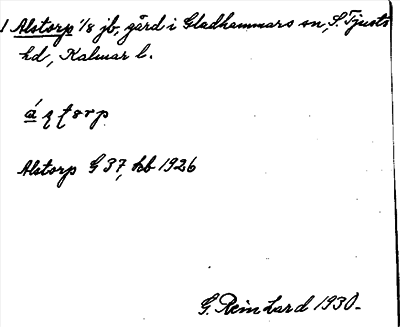 1 Alstorp 1/8 jb, gård i Gladhammars sn, S. Tjusts
hd, Kalmar l.
Alstorp G 37, kb 1926
G. Reinhard 1930.